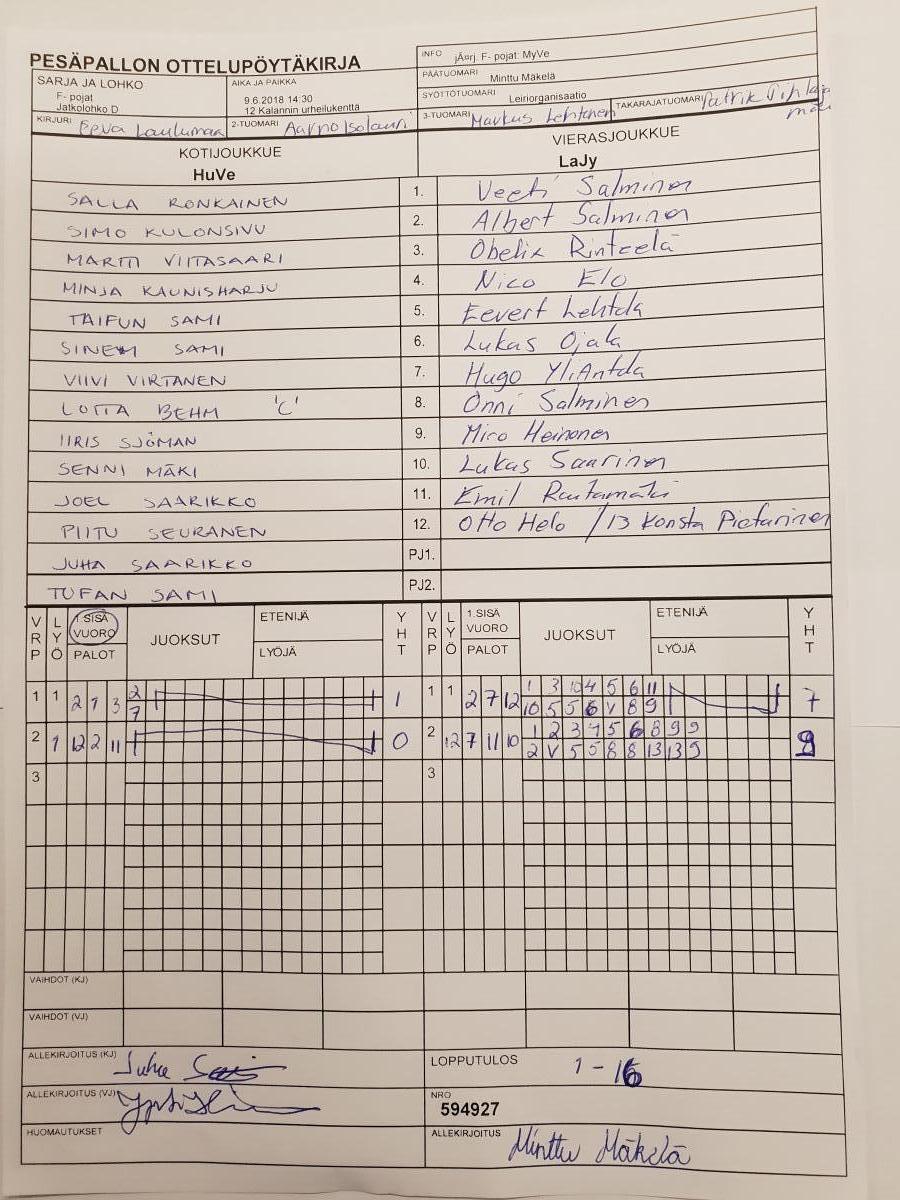 PESÄPALLON OTTELUPÖYTÄKIRJA
INFO jÄ¤rj. F- pojat: MyVe
PÄÄTUOMARI Minttu Mäkelä
SARJA JA LOHKO
F- pojat
Jatkolohko D
AIKA JA PAIKKA
9.6.2018 14:30
12 Kalannin urheilukentta
SYÖTTÖTUOMARI Leiriorganisaatio
KIRJURI Eeva Laulumaa 2-TUOMARI Aarno Isolauri 3-TUOMARI Markus Lehtinen TAKARAJATUOMARI Patrik Pihlajamäki
KOTIJOUKKUE
HuVe
VIERASJOUKKUE
LaJy
SALLA RONKAINEN 1. Veeti Salminen
SIMO KULONSIVU 2. Albert Salminen
MARTTI VIITASAARI 3. Obelix Rinteelä
MINJA KAUNISHARJU 4. Nico Elo
TAIFUN SAMI 5. Eevert Lehtola
SINEM SAMI 6. Lukas Ojala
VIIVI VIRTANEN 7. Hugo YliAntola
LOTTA BEHM 'C' 8. Onni Salminen
IIRIS SJÖMAN 9. Miro Heinonen
SENNI MÄKI 10. Lukas Saarinen
JOEL SAARIKKO 11. Emil Rautamäki
PIITU SEURANEN 12. Otto Helo / 13 Konsta Pietarinen
JUHA SAARIKKO PJ1.
TUFAN SAMI PJ2.
VRP LYÖ 1.SISÄ VUORO PALOT JUOKSUT ETENIJÄ LYÖJÄ YHT VRP LYÖ 1.SISÄ VUORO PALOT JUOKSUT ETENIJÄ LYÖJÄ YHT
1 1 2 1 3 2 1 1 1 2 7 12 1 3 10 4 5 6 11 7
7 10 5 5 6 V 8 9
2 9 12 2 11 0 2 12 7 11 10 1 2 3 4 5 6 8 9 9 9
2 V 5 5 8 8 13 13 9
3 3
VAIHDOT (KJ)
VAIHDOT (VJ)
ALLEKIRJOITUS (KJ) Juha
LOPPUTULOS 1 - 16
ALLEKIRJOITUS (VJ)
NRO
594927
HUOMAUTUKSET
ALLEKIRJOITUS Minttu Mäkelä